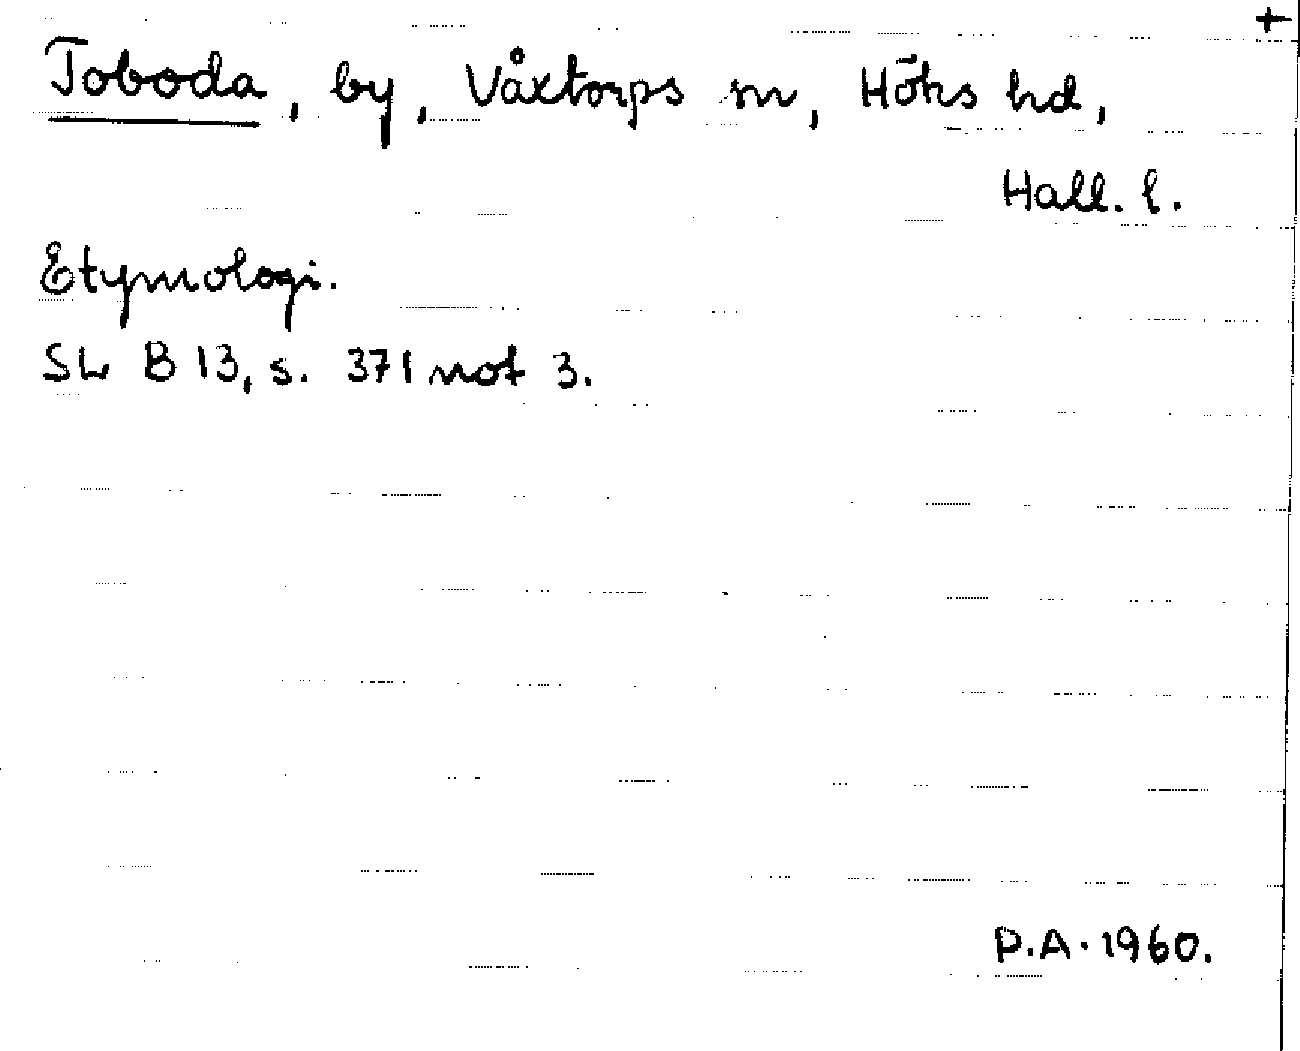 +
Toboda, by, Våxtorps sn, Höks hd,
Hall. l.
Etymologi.
SL B 13, s. 371 not 3.
P.A. 1960.